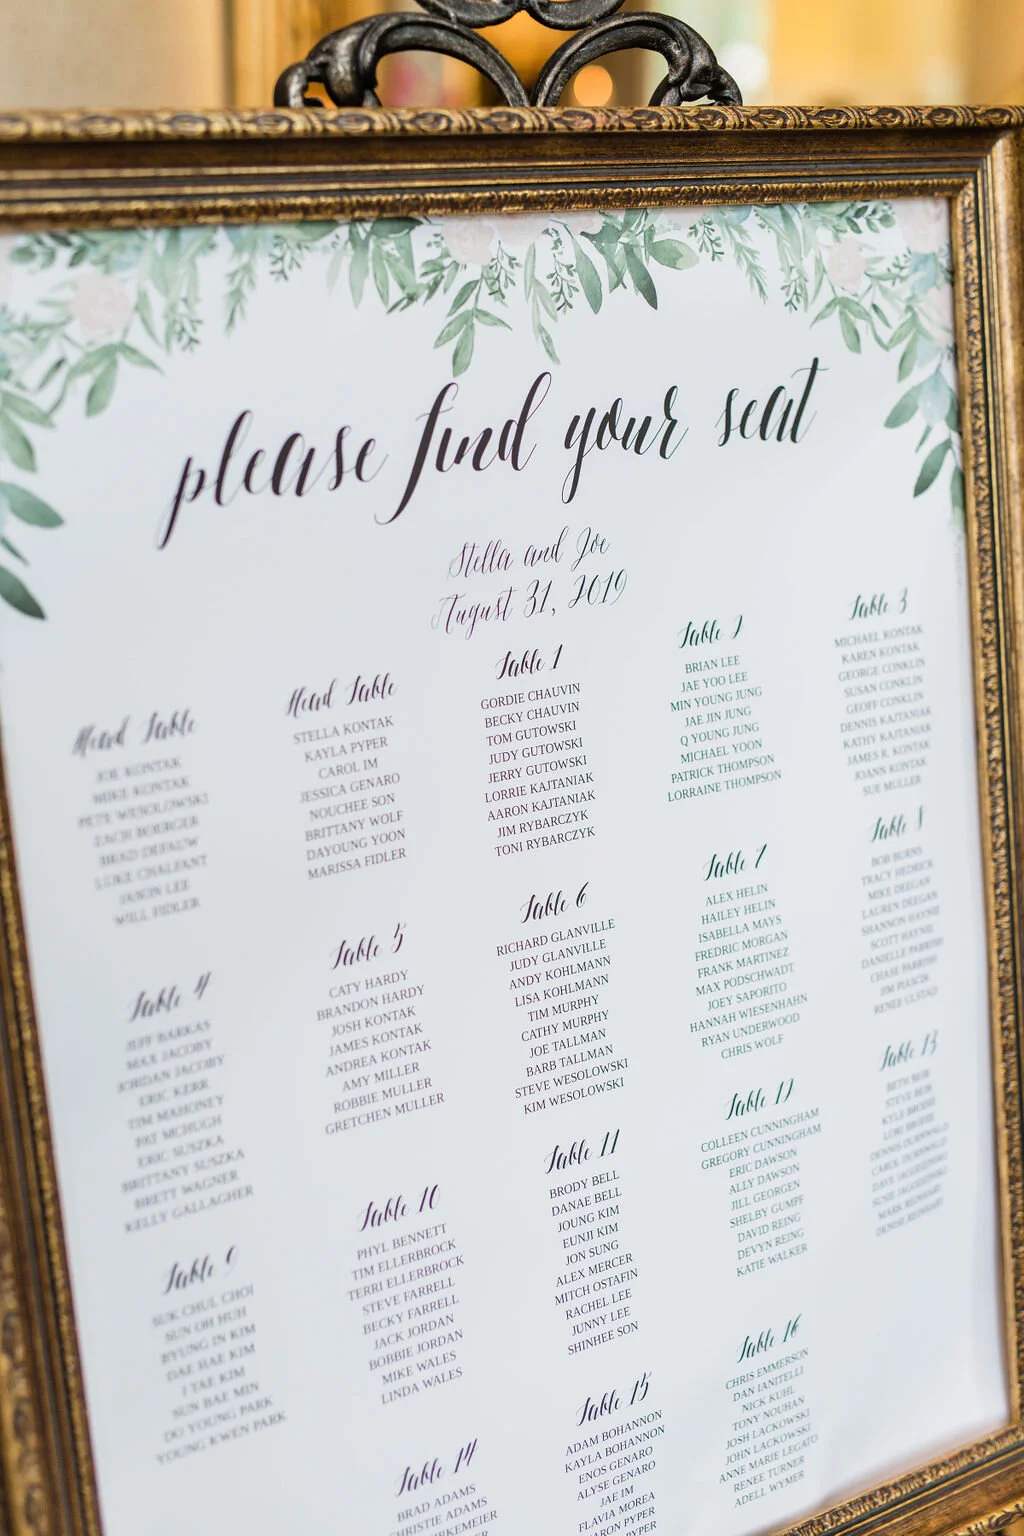 please find your seat
Stella and Joe
August 31, 2019
Head Table
JOE KONTAK
MIKE KONTAK
PETE WESOLOWSKI
ZACH BOERGER
BRAD DEFAUW
LUKE CHALFANT
JASON LEE
WILL FIDLER
Head Table
STELLA KONTAK
KAYLA PYPER
CAROL IM
JESSICA GENARO
NOUCHEE SON
BRITTANY WOLF
DAYOUNG YOON
MARISSA FIDLER
Table 1
GORDIE CHAUVIN
BECKY CHAUVIN
TOM GUTOWSKI
JUDY GUTOWSKI
JERRY GUTOWSKI
LORRIE KAJTANIAK
AARON KAJTANIAK
JIM RYBARCZYK
TONI RYBARCZYK
Table 2
BRIAN LEE
JAE YOO LEE
MIN YOUNG JUNG
JAE JIN JUNG
Q YOUNG JUNG
MICHAEL YOON
PATRICK THOMPSON
LORRAINE THOMPSON
Table 3
MICHAEL KONTAK
KAREN KONTAK
GEORGE CONKLIN
SUSAN CONKLIN
GEOFF CONKLIN
DENNIS KAJTANIAK
KATHY KAJTANIAK
JAMES R. KONTAK
JOANN KONTAK
SUE MULLER
Table 4
JEFF BARKAS
MAX JACOBY
JORDAN JACOBY
ERIC KERR
TIM MAHONEY
PAT MCHUGH
ERIC SUSZKA
BRITTANY SUSZKA
BRETT WAGNER
KELLY GALLAGHER
Table 5
CATY HARDY
BRANDON HARDY
JOSH KONTAK
JAMES KONTAK
ANDREA KONTAK
AMY MILLER
ROBBIE MULLER
GRETCHEN MULLER
Table 6
RICHARD GLANVILLE
JUDY GLANVILLE
ANDY KOHLMANN
LISA KOHLMANN
TIM MURPHY
CATHY MURPHY
JOE TALLMAN
BARB TALLMAN
STEVE WESOLOWSKI
KIM WESOLOWSKI
Table 7
ALEX HELIN
HAILEY HELIN
ISABELLA MAYS
FREDRIC MORGAN
FRANK MARTINEZ
MAX PODSCHWADT
JOEY SAPORITO
HANNAH WIESENHAHN
RYAN UNDERWOOD
CHRIS WOLF
Table 8
BOB BURNS
TRACY HEDRICK
MIKE DEEGAN
LAUREN DEEGAN
SHANNON HAYNIE
SCOTT HAYNIE
DANIELLE PARRISH
CHASE PARRISH
JIM PIASCIK
RENEE ULSTAD
Table 9
SUK CHUL CHOI
SUN OH HUH
BYUNG IN KIM
DAE HAE KIM
I TAE KIM
SUN BAE MIN
DO YOUNG PARK
YOUNG KWEN PARK
Table 10
PHYL BENNETT
TIM ELLERBROCK
TERRI ELLERBROCK
STEVE FARRELL
BECKY FARRELL
JACK JORDAN
BOBBIE JORDAN
MIKE WALES
LINDA WALES
Table 11
BRODY BELL
DANAE BELL
JOUNG KIM
EUNJI KIM
JON SUNG
ALEX MERCER
MITCH OSTAFIN
RACHEL LEE
JUNNY LEE
SHINHEE SON
Table 12
COLLEEN CUNNINGHAM
GREGORY CUNNINGHAM
ERIC DAWSON
ALLY DAWSON
JILL GEORGEN
SHELBY GUMPF
DAVID REING
DEVYN REING
KATIE WALKER
Table 13
BETH BEIR
STEVE BEIR
KYLE BRODIE
LORI BRODIE
DENNIS DURNWALD
CAROL DURNWALD
DAVE JAGODZINSKI
SUSIE JAGODZINSKI
MARK REINHART
DENISE REINHART
Table 14
BRAD ADAMS
CHRISTIE ADAMS
Table 15
ADAM BOHANNON
KAYLA BOHANNON
ENOS GENARO
ALYSE GENARO
JAE IM
FLAVIA MOREA
PYPER
Table 16
CHRIS EMMERSON
DAN IANITELLI
NICK KUHL
TONY NOUHAN
JOSH LACKOWSKI
JOHN LACKOWSKI
ANNE MARIE LEGATO
RENEE TURNER
ADELL WYMER